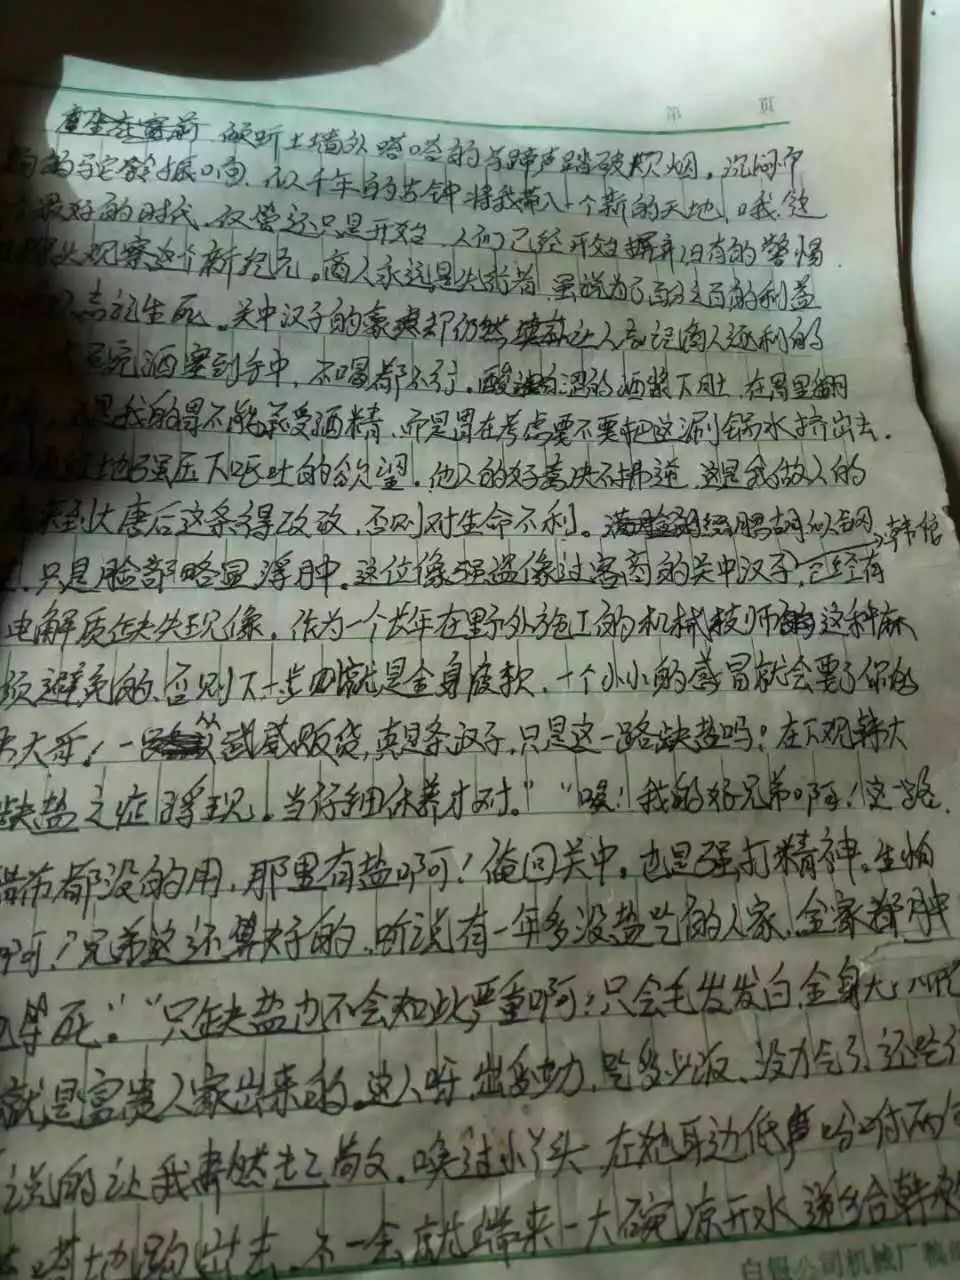 第 页
坐在窗前 倾听土墙外嗒嗒的马蹄声踏破炊烟，沉闷中
的驼铃振响 似千年的古钟将我带入一个新的天地，哦，这
最好的时代，仅管还只是开始，人们已经开始摒弃旧有的警惕
头观察这个新。商人永远是先行者，虽说为了百分之百的利益
志记生死。关中汉子的豪爽却仍然让人忘记商人逐利的
碗酒塞到手中，不喝都不行，酸涩的酒浆下肚，在胃里翻
是我的胃不能承受酒精，而是胃在考虑要不要把这涮锅水挤出去。
地强压下呕吐的欲望，他人的好意决不拂逆，这是我做人的
来到大唐后这条得改改，否则对生命不利。
只是脸部略显浮肿。这位像强盗像过客商的关中汉子，已经有
电解质缺失现像，作为一个长年在野外施工的机械技师这种麻
须避免的，否则下一步就是全身疲软，一个小小的感冒就会要了你的
大哥！一从武威贩货，真是条汉子，只是这一路缺盐吗？在下观韩大
缺盐之症浮现。当仔细休养才对。”“嗳！我的好兄弟啊！这一路
醋布都没的用，那里有盐啊！俺回关中，也是强打精神。生怕
啊！兄弟这还算好的，听说有一年多没盐吃的人家，全家都肿
等死。”“只缺盐也不会如此严重啊！只会毛发发白，全身
就是富贵人家出来的。这人呀，出多少力，吃多少饭，没力气了，还吃
说的让我肃然起敬。唤过小丫头，在她身边低声吩咐两句
嗒地跑出去，不一会就端来一大碗凉开水递给韩
白银公司机械厂稿